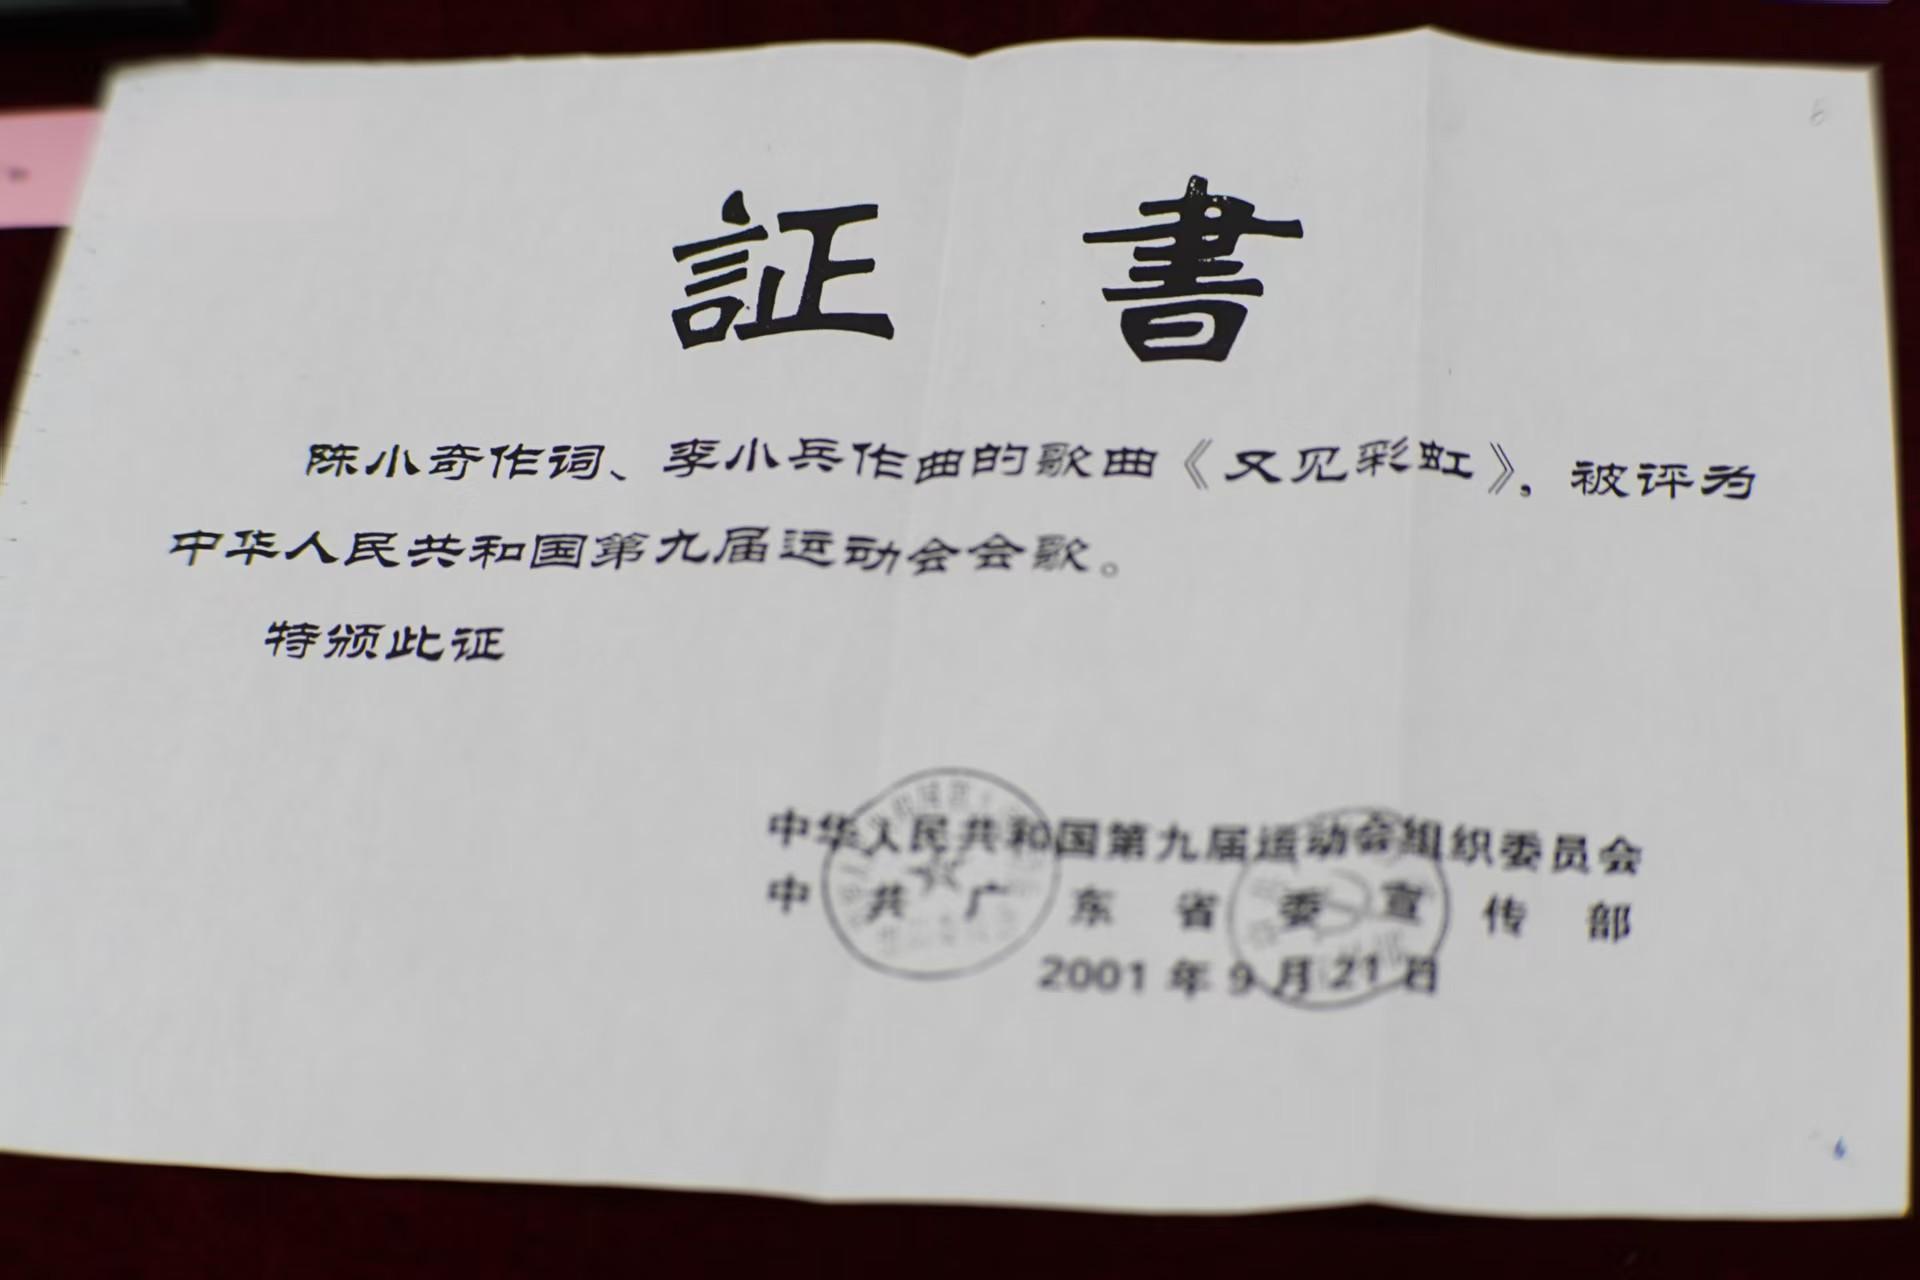 証 書
陈小奇作词、李小兵作曲的歌曲《又见彩虹》，被评为
中华人民共和国第九届运动会会歌。
特颁此证
中华人民共和国第九届运动会组织委员会
中共广东省委宣传部
2001年9月21日